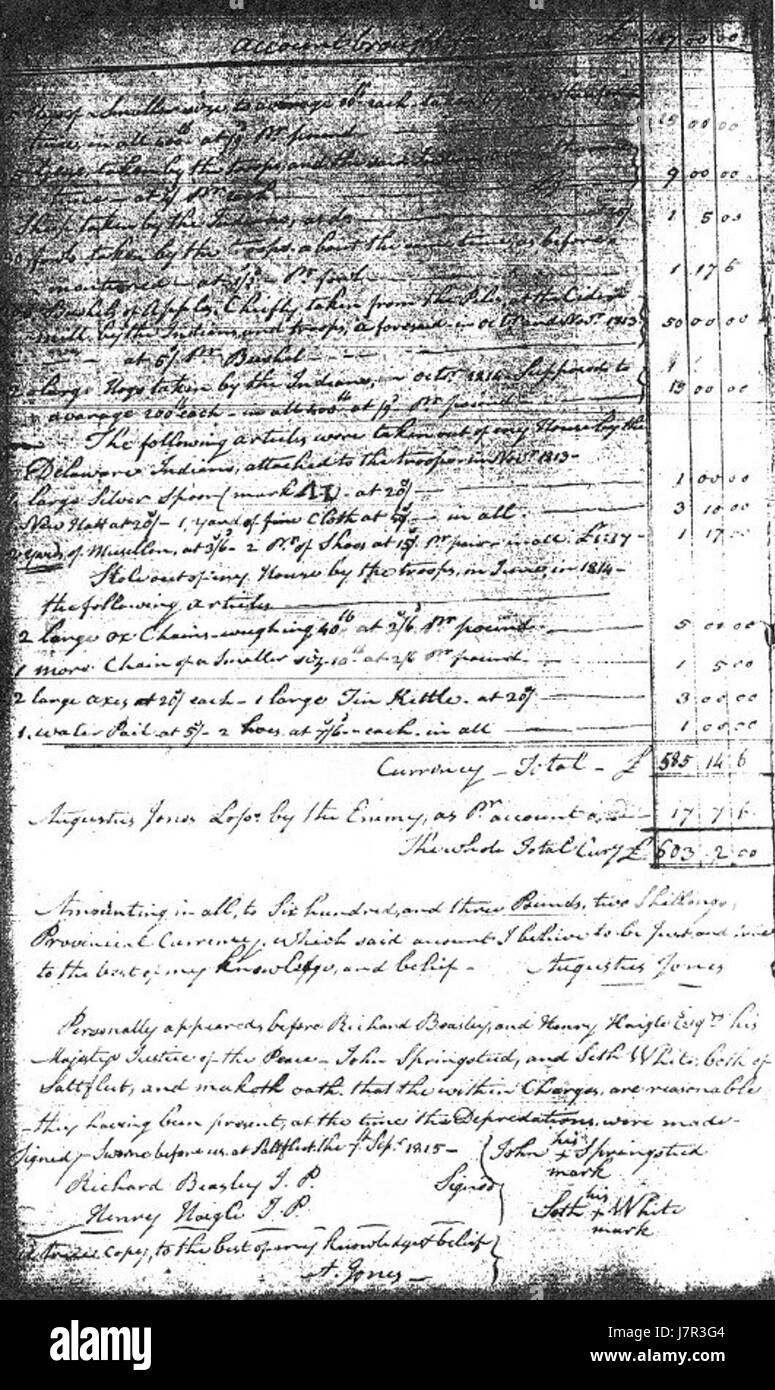 Account brought £ 487 00 00
of a Smaller size to average each taken by
time, in all at 9d Pr pound 15 00 00
Geese taken by the troops and the said Indians
time at Pr each 9 00 00
Sheep taken by the Indians, as do 1 5 00
30 fowls taken by the troops, about the same time, as before
mentioned at 1/3d Pr fowl 1 17 6
Bushels of Apples, Chiefly taken from the Pile, at the Cider
mill, by the Indians and troops, aforesaid in Octr and Novr 1813
at 5/ Pr Bushel 50 00 00
2 large Hogs taken by the Indians, in Octr 1814 Supposed to
average 200lb each in all 400lb at 9d Pr pound 15 00 00
The following articles were taken out of my House by the
Delaware Indians, attached to the troops in Novr 1813 -
large Silver Spoon (mark ) at 20/ 1 00 00
New Hatt at 20/ - 1 yard of fine Cloth at 50/ in all 3 10 00
yards of Musellen, at 3/6 - 2 Prs of Shoes at Pr pair in all £1:17 - 1 17 00
Stole out of my House by the troops, in June, in 1814 -
the following articles
2 large ox Chains - weighing 40lb at 2/6 Pr pound 5 00 00
1 more Chain of a Smaller size 10lb at 2/6 Pr pound 1 5 00
2 large axes at 20/ each - 1 large Tin Kettle at 20/ 3 00 00
1 water Pail at 5/ - 2 hoes at 7/6 - each in all 1 00 00
Currency - Total - £ 585 14 6
Augustus Jones Loss by the Enemy, as Pr account 17 7 6
The whole Total Cury £ 603 2 00
Amounting in all, to Six hundred, and three Pounds, two Shillings,
Provincial Currency, which said account I believe to be Just and true
to the best of my knowledge, and belief - Augustus Jones
Personally appeared before Richard Beasley, and Henry Haigle Esqrs his
Majestys Justice of the Peace - John Springsted, and Seth White, both of
Saltfleet, and maketh oath that the within Charges, are reasonable
- they having been present, at the time the Depredations, were made -
Signed & Sworn before us, at Saltfleet the 7t Sepr 1815 -
Richard Beasley J. P.
Henry Haigle J. P.
Signed
John his + mark Springsted
Seth his + mark White
A true copy, to the best of my knowledge & belief
A. Jones -
alamy
Image ID: J7R3G4
www.alamy.com